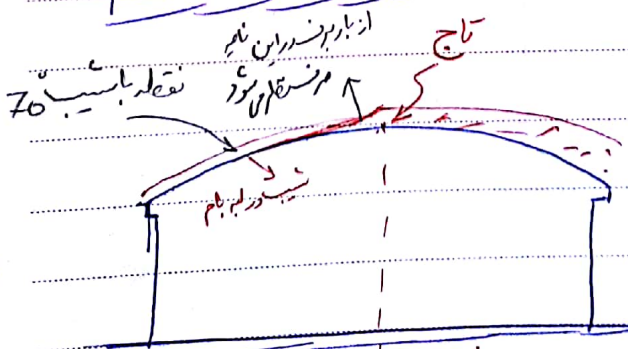 تاج
از بار برف در این ناحیه
صرف نظر می شود
نقطه با شیب 70°
شیب در لبه بام